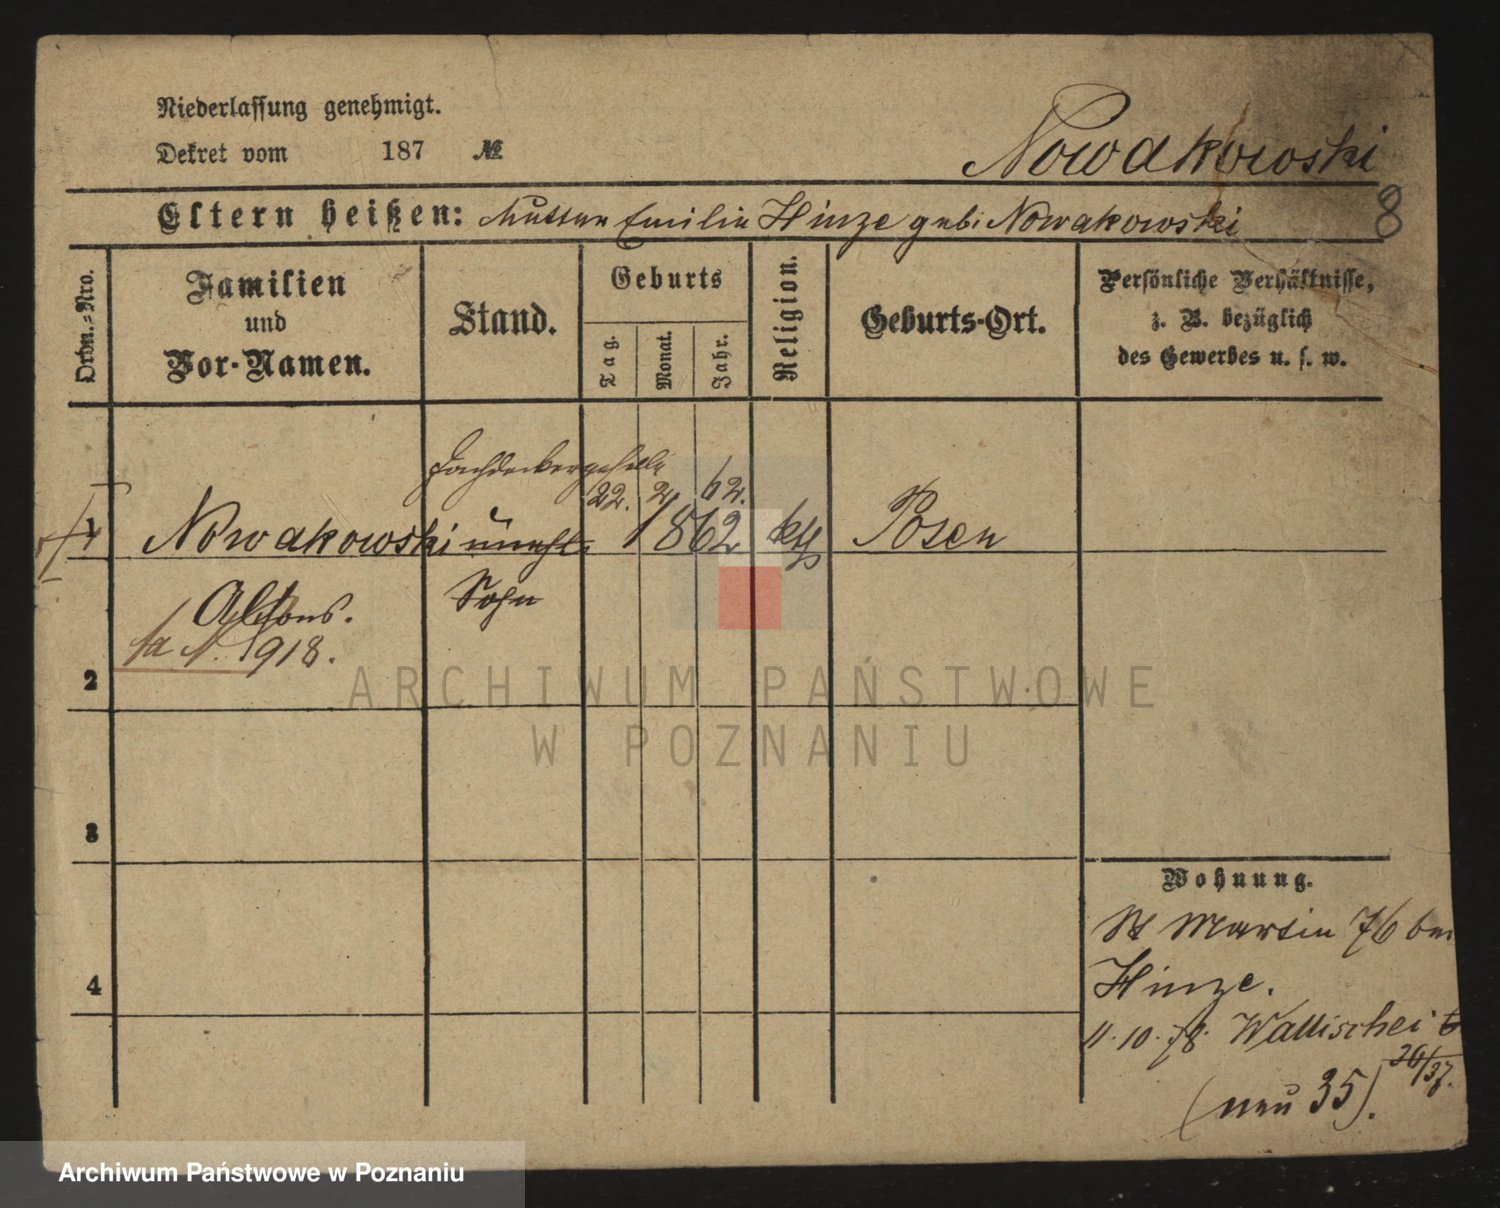 Niederlassung genehmigt.
Dekret vom 187 №
Nowakowski
8
Eltern heißen: Mutter Emilie Hinze geb: Nowakowski
Ordn.-Nro.
Familien
und
Vor-Namen.
Stand.
Geburts
Tag.
Monat.
Jahr.
Religion.
Geburts-Ort.
Persönliche Verhältnisse,
z. B. bezüglich
des Gewerbes u. s. w.
22. 2 62.
1 Nowakowski unehl. 1862 kth Posen
Alfons. Sohn
1918.
2
3
4
Wohnung.
St Martin 76 bei
Hinze.
11.10.78. Wallischei 6
36/37.
(neu 35).
ARCHIWUM PAŃSTWOWE
W POZNANIU
Archiwum Państwowe w Poznaniu